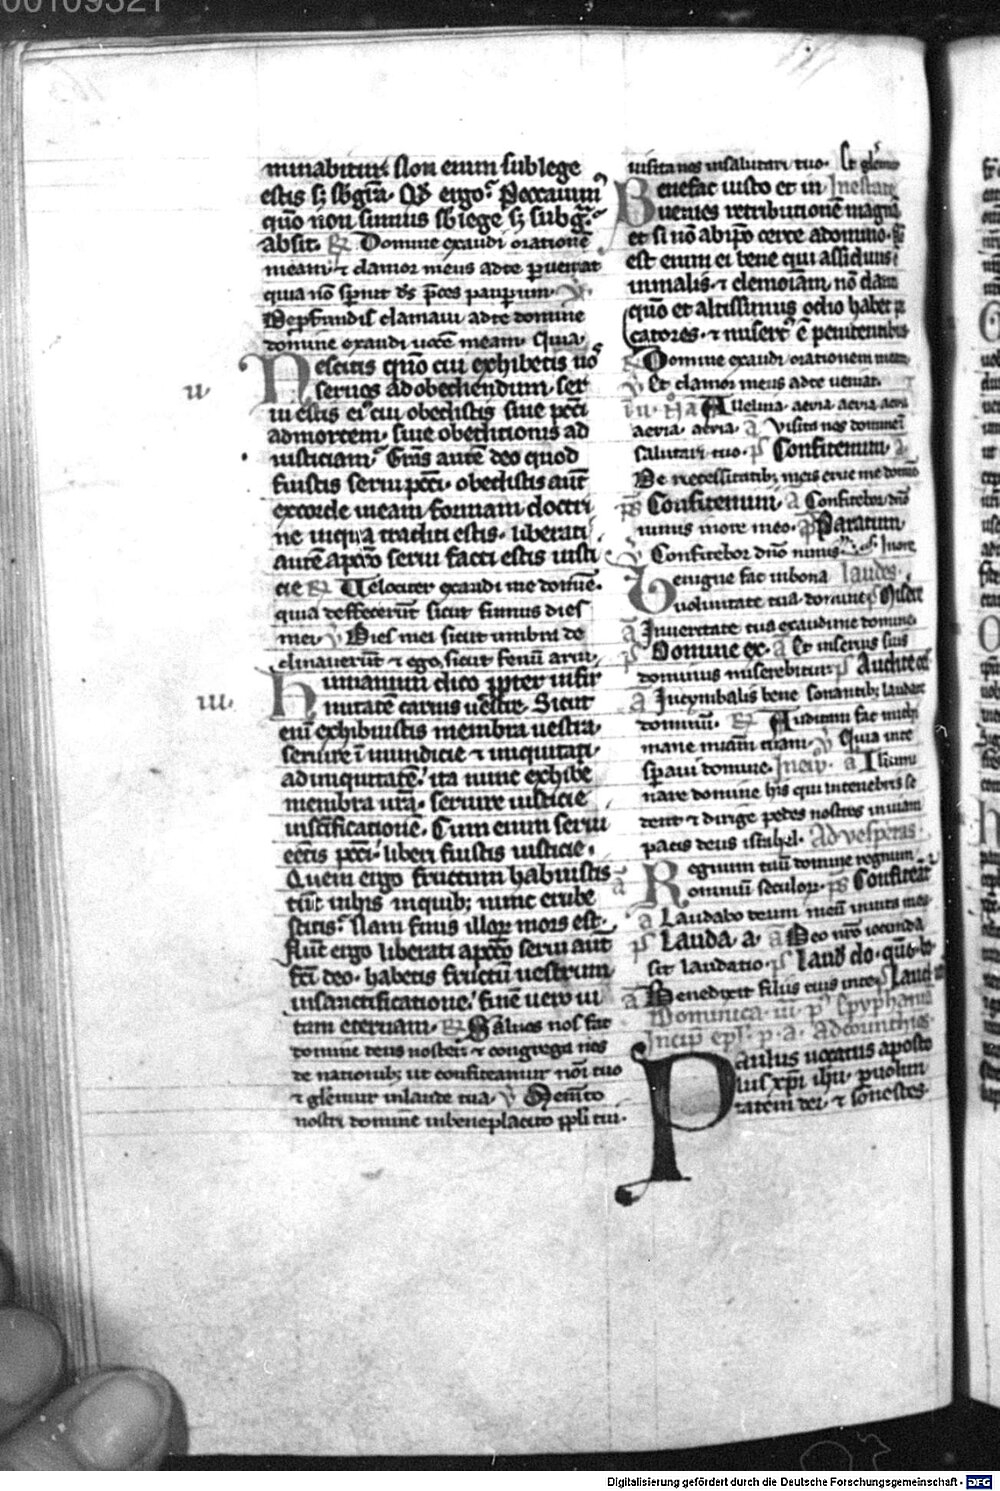 00109321
minabitur. Non enim sub lege
estis sʒ sb grã. Qd ergo? Peccauim9
quo non sumus sb lege sʒ sub g.
absit. R Domine exaudi orationē
meam ⁊ clamor meus ad te perueniat
quia nō spnit ds pces pauperum V
De pfundis clamaui ad te domine
domine exaudi uocē meam. Quia
Nescitis quō cui exhibetis uo
u seruos ad obediendum. ser
ui estis ei9 cui obedistis siue pcci
ad mortem. siue obeditionis ad
iusticiam. Gras autē deo quod
fuistis serui pcci. obedistis aūt
ex corde in eam formam doctri
ne in qua traditi estis. liberati
autē a pcco serui facti estis iusti
cie R Uelociter exaudi me domīe.
quia deffecerūt sicut fumus dies
mei V Dies mei sicut umbra de
clinauerūt ⁊ ego sicut fenū arui
Humanum dico ppter infir
iii. mitatē carnis uestre. Sicut
eni exhibuistis membra uestra
seruire īmundicie ⁊ iniquitati
ad iniquitatē. ita nunc exhibe
membra ura. seruire iusticie
in scificationē. Cum enim serui
eetis pcci. liberi fuistis iusticie.
Quem ergo fructum habuistis
tūc in his in quib; nunc erube
scitis? Nam finis illor mors est.
Nūc ergo liberati a pcco serui aūt
fci deo. habetis fructū uestrum
in sanctificatione. finē uero ui
tam eternam. R Saluos nos fac
domine deus noster ⁊ congrega nos
de nationib; ut confiteamur noi tuo
⁊ gloriemur in laude tua V Memto
nostri domine in beneplacito ppli tui.
uisita nos in salutari tuo.
Benefac iusto et in
uenies retributionē magnā
et si nō ab ipo certe a domino.
est enim ei bene qui assiduus
in malis. ⁊ elemoiam nō dan
quō et altissimus odio habet pc
catores. ⁊ misert9 ē penitentibus
Domine exaudi orationem meam
V Et clamor meus ad te ueniat.
Alleluia. aeuia aeuia aeuia
aeuia. aeuia. a Uisita nos domine
salutari tuo. ps Confitemini. a
De necessitatib; meis erue me domine
ps Confitemini a Confitebor dno
nimis in ore meo. ps Paratum
V Confitebor dno nimis In ore
Benigne fac in bona laudes.
uoluntate tua domine ps Misere
a In ueritate tua exaudi me domine
ps Domine ex. a Et in seruis suis
dominus miserebitur ps Audite ce
a In cymbalis bene sonantib; laudate
dominū. R Auditam fac michi
mane miam tuam V Quia in te
speraui domine. In eu. a Illumi
nare domine his qui in tenebris se
dent ⁊ dirige pedes nostros in uiam
pacis deus israhel. Ad uesperas
Regnum tuū domine regnum
omniū seculor. ps Confiteat
a Laudabo deum meū in uita mea
ps Lauda a. a Deo nro iocunda
sit laudatio. ps Laud do. quo bo
a Benedixit filiis tuis in te ps Lauda
Dominica iii p epyphaniā
Incip epl. p. a. ad corinthios
Paulus uocatus aposto
lus xpi ihu. p uolun
tatem dei. ⁊ sostenes
Digitalisierung gefördert durch die Deutsche Forschungsgemeinschaft - DFG